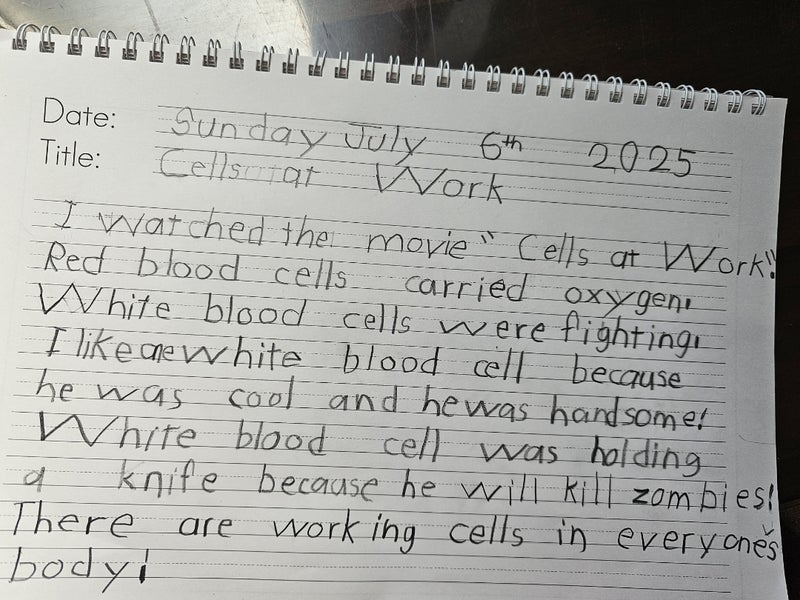 Date: Sunday July 6th 2025
Title: Cells at Work
I watched the movie "Cells at Work"!
Red blood cells carried oxygen.
White blood cells were fighting.
I like one White blood cell because
he was cool and he was handsome!
White blood cell was holding
a knife because he will kill zombies!
There are working cells in everyone's
body!